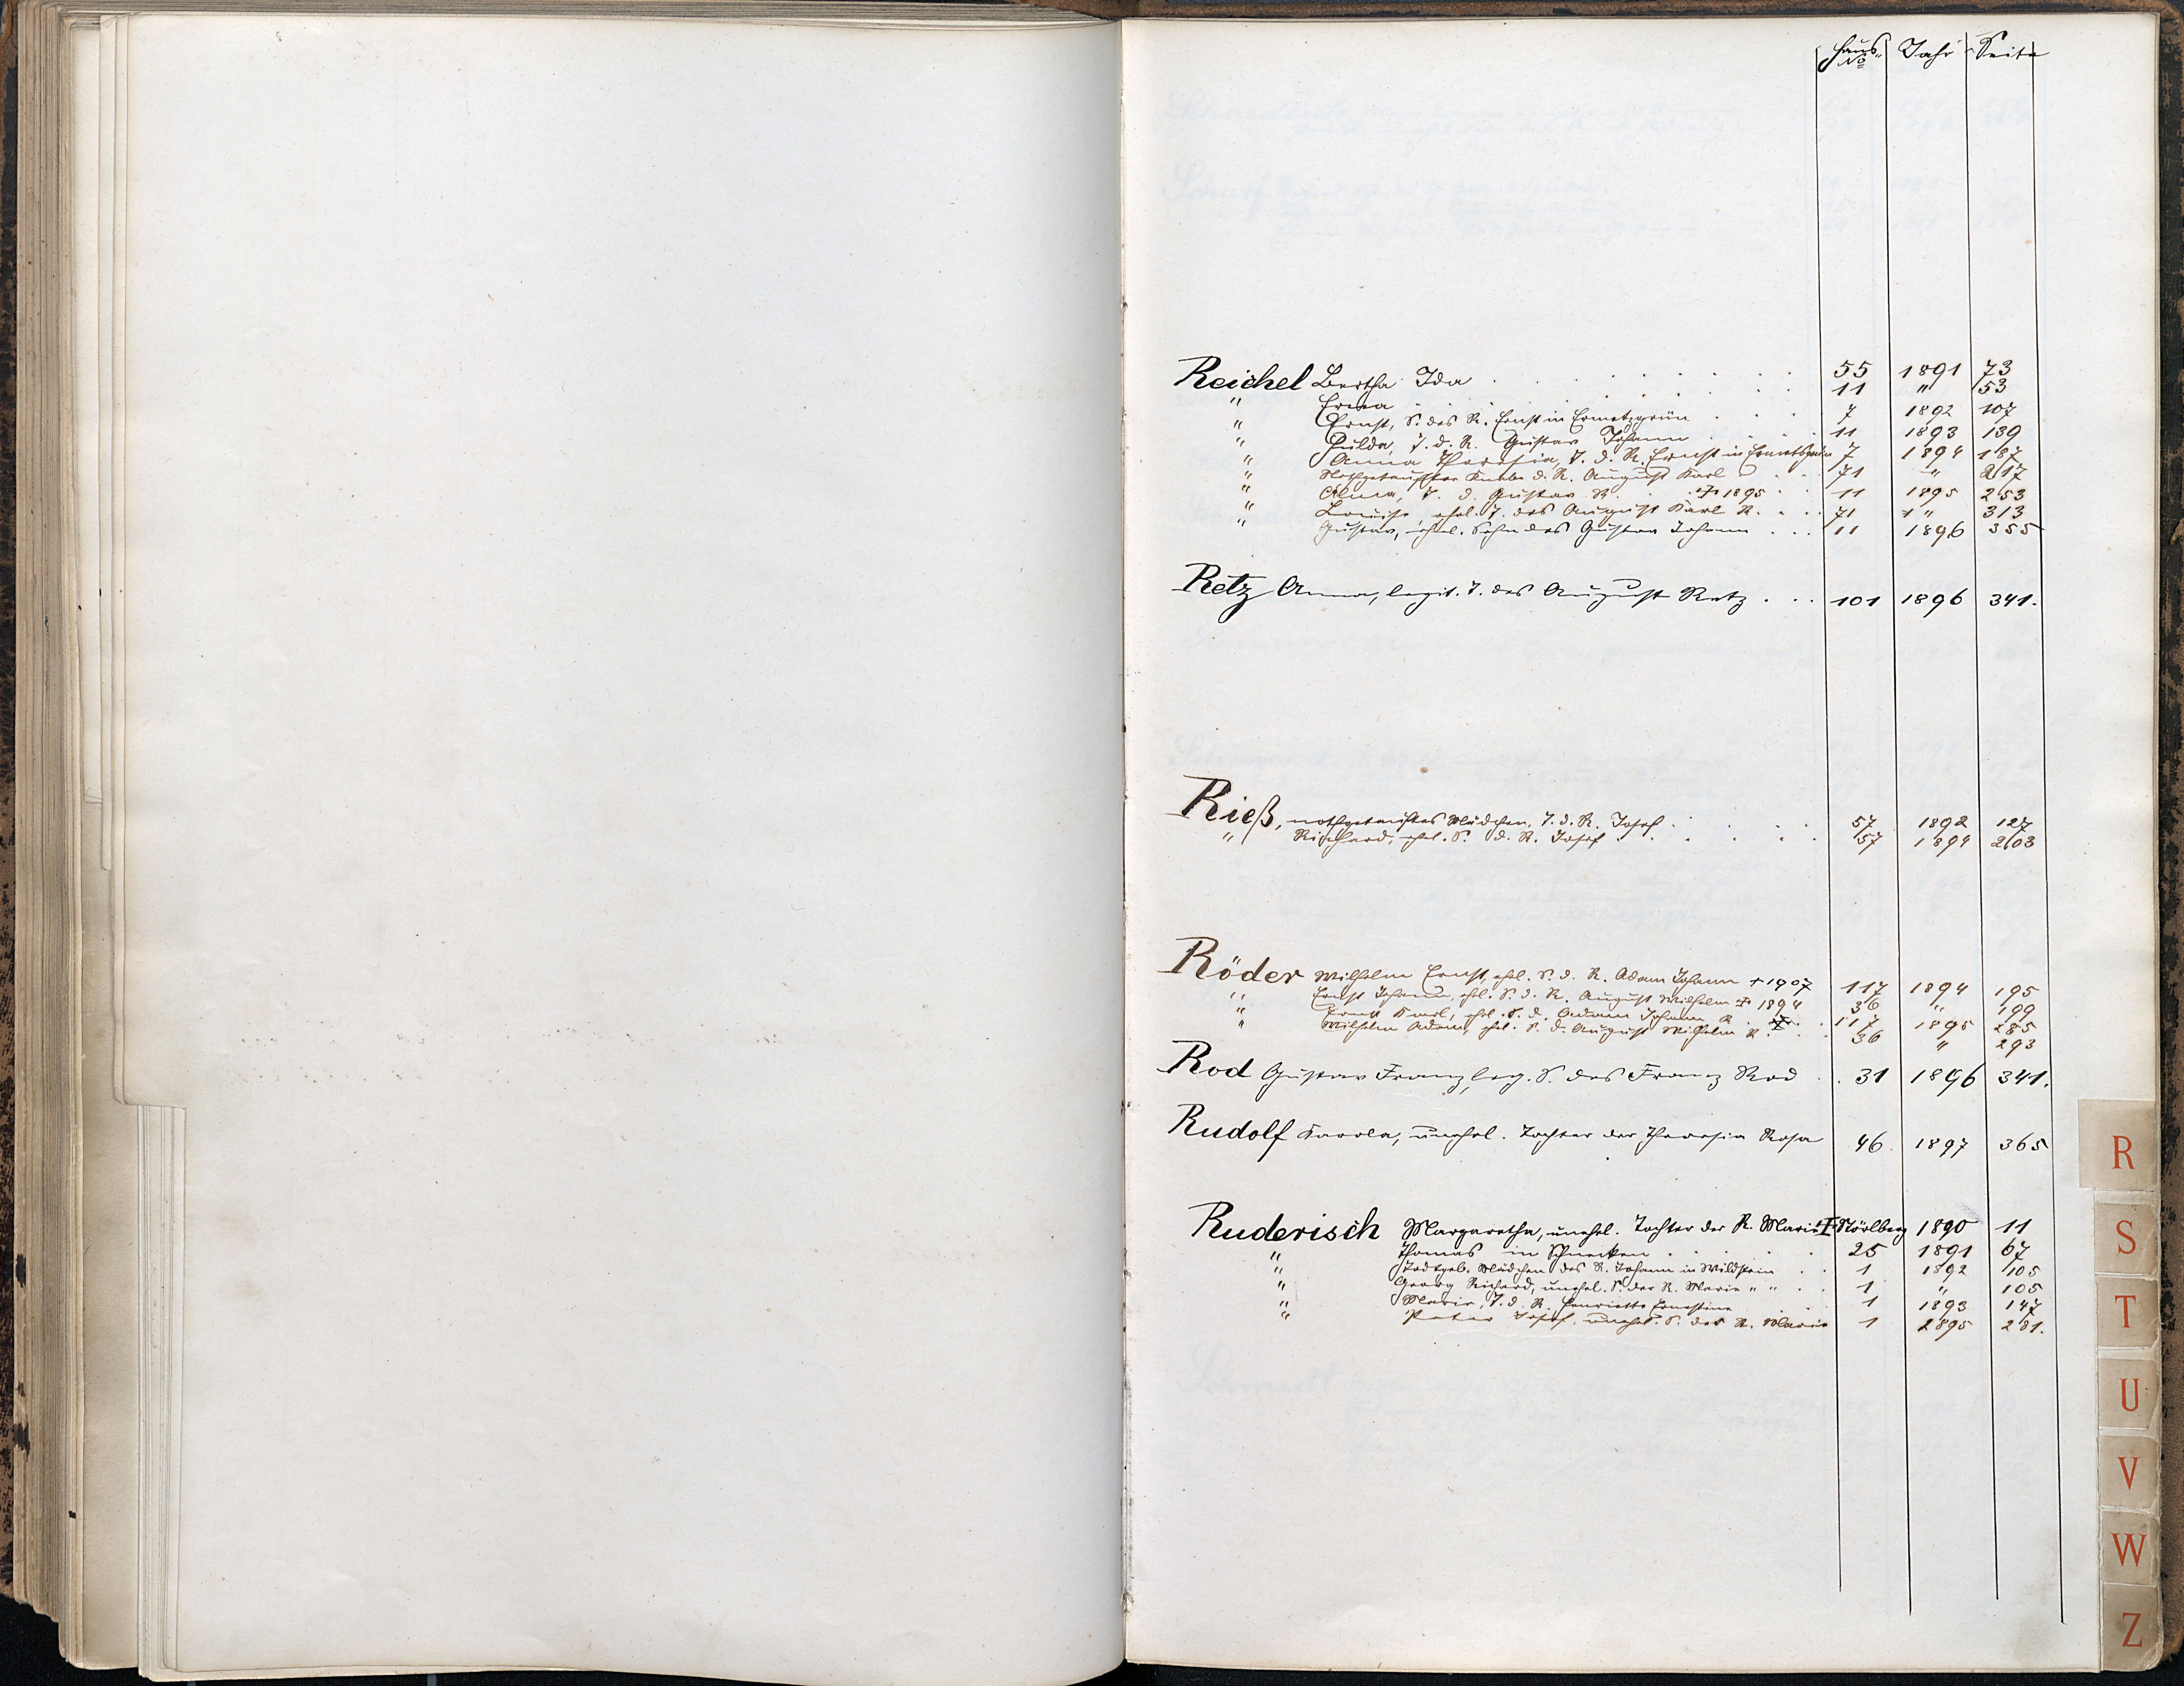 Haus No Jahr Seite
Reichel Bertha Ida . . . . . . . 55 1891 73
" Erna . . . . . . . 11 " 53
" Ernst, S. des R. Ernst in Ermetzgrün . . . 7 1892 107
" Hulda, T. d. R. Gustav Johann . . . 11 1893 139
" Anna Theresia, T. d. R. Ernst in Ermetsgrün 7 1894 187
" Nothgetaufter Knabe d. R. August Karl . . . 71 " 217
" Alma, T. d. Gustav R. . . † 1895 . . 11 1895 253
" Louise, ehel. T. des August Karl R. . . . 71 " 313
" Gustav, ehel. Sohn des Gustav Johann . . . 11 1896 355
Retz Anna, legit. T. des August Retz . . . 101 1896 341.
Rieß, nothgetauftes Mädchen, T. d. R. Josef . . . . 57 1892 127
" Richard, ehel. S. d. R. Josef . . . . . 57 1894 203
Röder Wilhelm Ernst, ehel. S. d. R. Adam Johann † 1907 117 1894 195
" Ernst Johann, ehel. S. d. R. August Wilhelm † 1894 36 " 199
" Ernst Karl, ehel. S. d. Adam Johann R . † . . 117 1895 285
" Wilhelm Adam, ehel. S. d. August Wilhelm R . . . 36 " 293
Rod Gustav Franz, leg. S. des Franz Rod . . 31 1896 341.
Rudolf Karola, unehel. Tochter der Theresia Rosa 46. 1897 365
Ruderisch Margaretha, unehel. Tochter der R. Marie I Störlberg 1890 11
" Thomas in Schnecken . . . . . 25 1891 67
" Todtgeb. Mädchen des R. Johann in Wildstein . . 1 1892 105
" Georg Richard, unehel. S. der R. Marie " " . . 1 " 105
" Maria, T. d. R. Henriette Ernestine . . . 1 1893 147
" Peter Josef, unehel. S. der R. Marie 1 1895 281.
R
S
T
U
V
W
Z